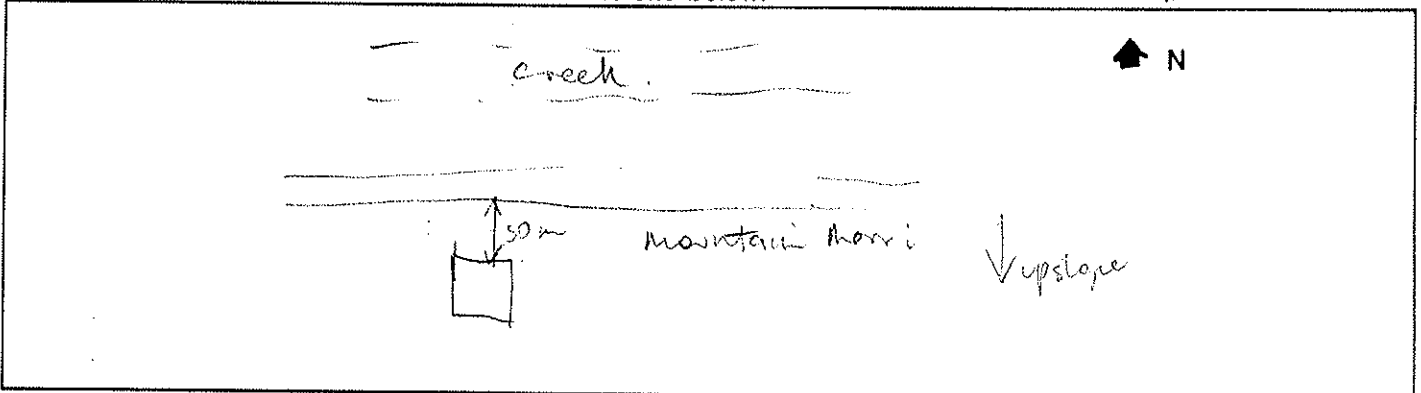 creek.
N
50m
mountain marri
upslope